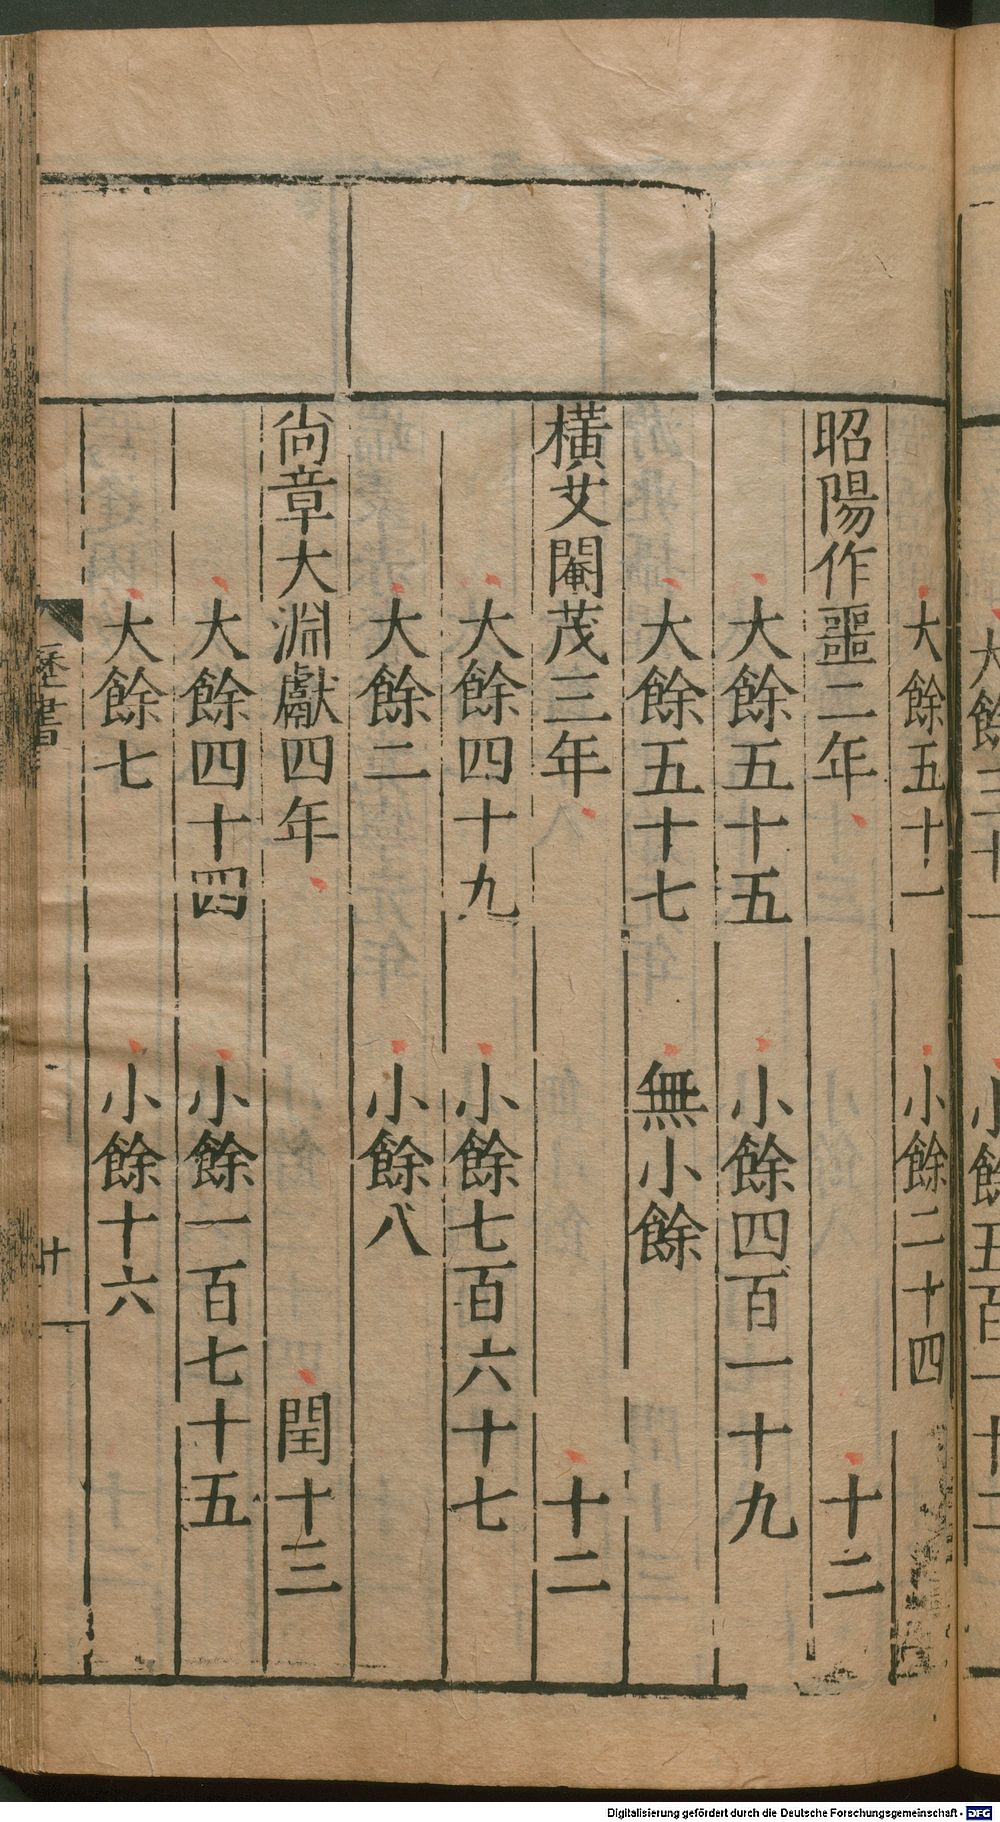 大餘五十一 小餘二十四
昭陽作噩二年 十二
大餘五十五 小餘四百一十九
大餘五十七 無小餘
橫艾閹茂三年 十二
大餘四十九 小餘七百六十七
大餘二 小餘八
尙章大淵獻四年 閏十三
大餘四十四 小餘一百七十五
大餘七 小餘十六
歷書 廿
Digitalisierung gefördert durch die Deutsche Forschungsgemeinschaft - DFG